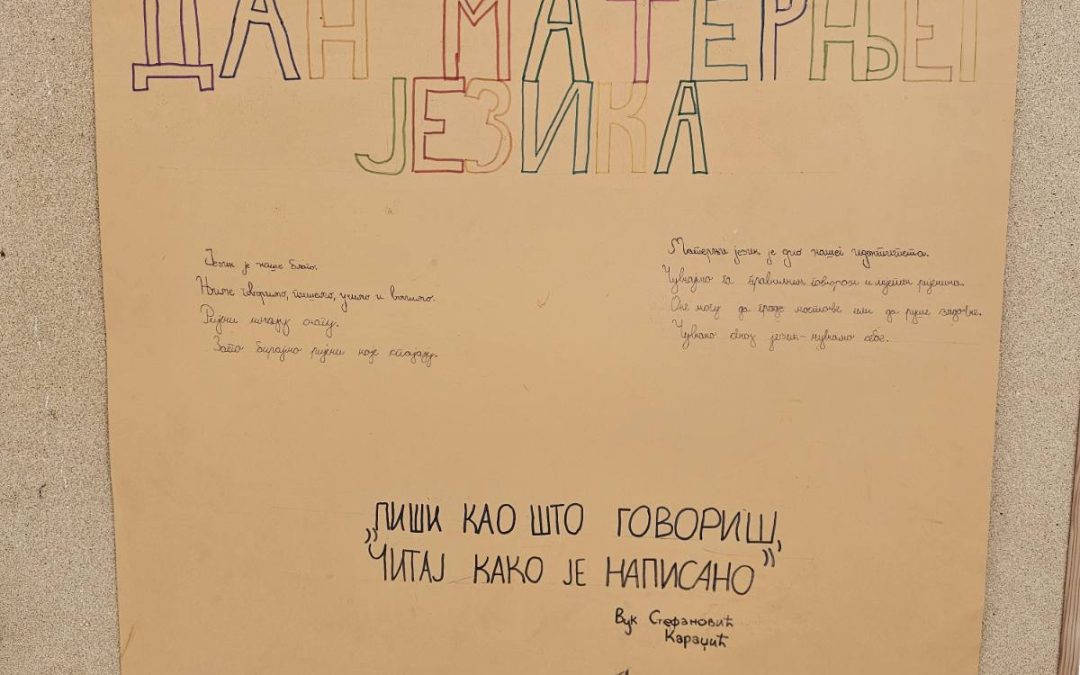 ДАН МАТЕРЊЕГ
ЈЕЗИКА
Језик је наше благо.
Њиме говоримо, пишемо, учимо и волимо.
Ријечи имају снагу.
Зато бирајмо ријечи које спајају.
Матерњи језик је дио нашег идентитета.
Чувајмо га правилним говором и лијепим ријечима.
Оне могу да граде мостове или да руше зидове.
Чувамо свој језик - чувамо себе.
„ПИШИ КАО ШТО ГОВОРИШ,
ЧИТАЈ КАКО ЈЕ НАПИСАНО”
Вук Стефановић
Караџић